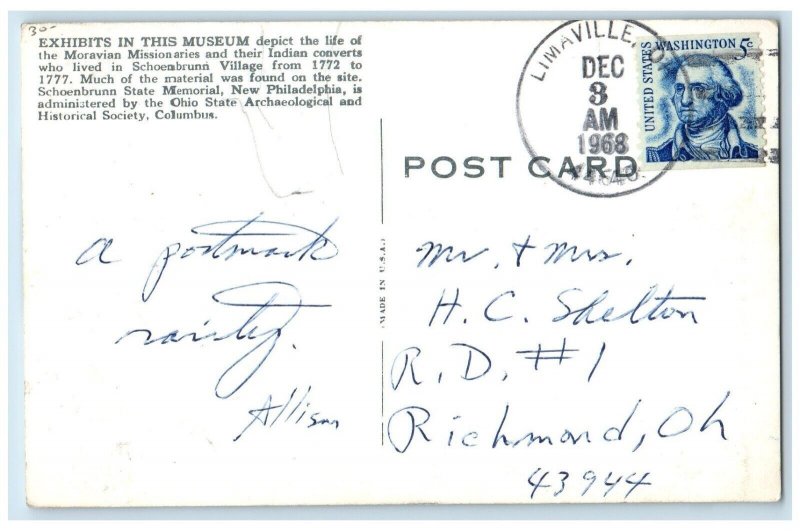 30-
EXHIBITS IN THIS MUSEUM depict the life of
the Moravian Missionaries and their Indian converts
who lived in Schoenbrunn Village from 1772 to
1777. Much of the material was found on the site.
Schoenbrunn State Memorial, New Philadelphia, is
administered by the Ohio State Archaeological and
Historical Society, Columbus.
LIMAVILLE, O
DEC
3
AM
1968
UNITED STATES
WASHINGTON 5¢
POST CARD
MADE IN U.S.A.
a postmark
raristy.
Allison
Mr. & Mrs.
H. C. Shelton
R. D. #1
Richmond, Oh
43944